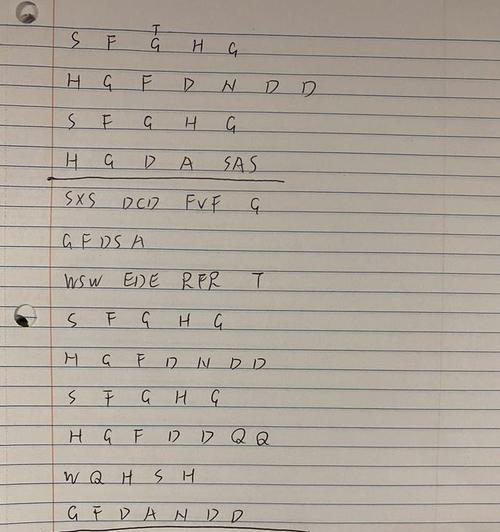 T
S F G H G
H G F D N D D
S F G H G
H G D A SAS
SXS DCD FVF G
G F D S A
WSW EDE RFR T
S F G H G
H G F D N D D
S F G H G
H G F D D Q Q
W Q H S H
G F D A N D D